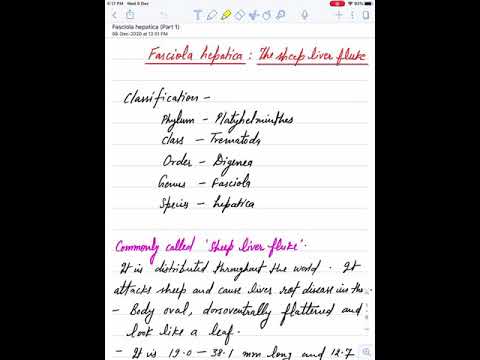 6:17 PM Wed 9 Dec
93%
Fasciola hepatica (Part 1)
06-Dec-2020 at 12:51 PM
Fasciola hepatica : The sheep liver fluke
Classification -
Phylum - Platyhelminthes
Class - Trematoda
Order - Digenea
Genus - Fasciola
Species - hepatica
Commonly called 'sheep liver fluke'.
It is distributed throughout the world. It
attacks sheep and cause liver rot disease in the
- Body oval, dorsoventrally flattened and
look like a leaf.
- It is 19.0 - 38.1 mm long and 12.7